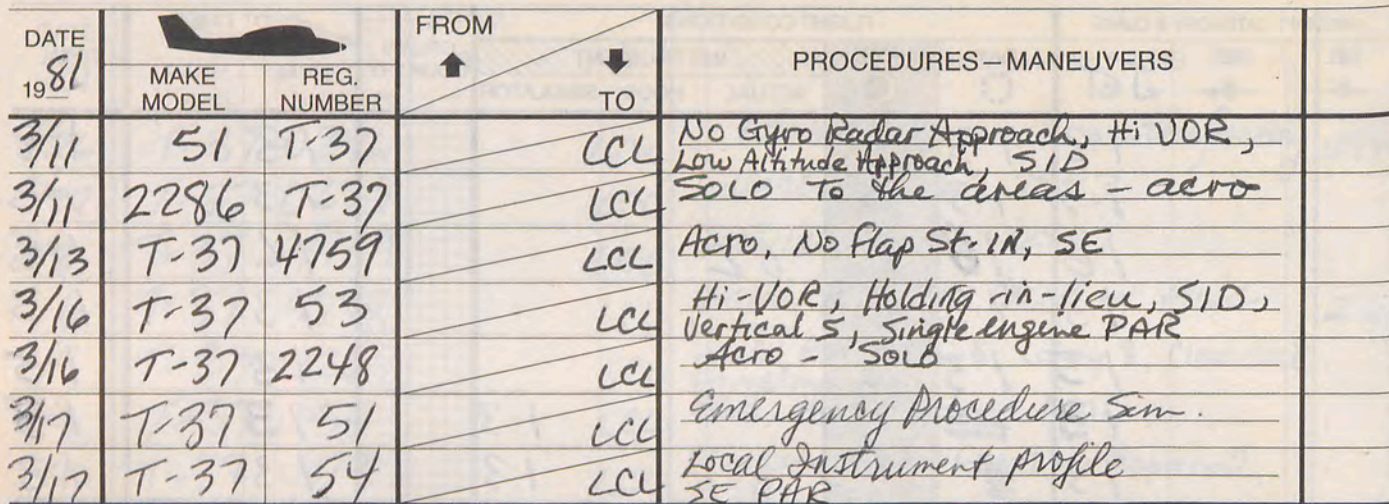 DATE
1981
MAKE
MODEL
REG.
NUMBER
FROM
TO
PROCEDURES–MANEUVERS
3/11 51 T-37 LCL No Gyro Radar Approach, Hi VOR,
Low Altitude Approach, SID
3/11 2286 T-37 LCL SOLO To the areas - acro
3/13 T-37 4759 LCL Acro, No Flap St-IN, SE
3/16 T-37 53 LCL Hi-VOR, Holding-in-lieu, SID,
Vertical S, Single engine PAR
3/16 T-37 2248 LCL Acro - Solo
3/17 T-37 51 LCL Emergency Procedure Sim.
3/17 T-37 54 LCL Local Instrument profile
SE PAR